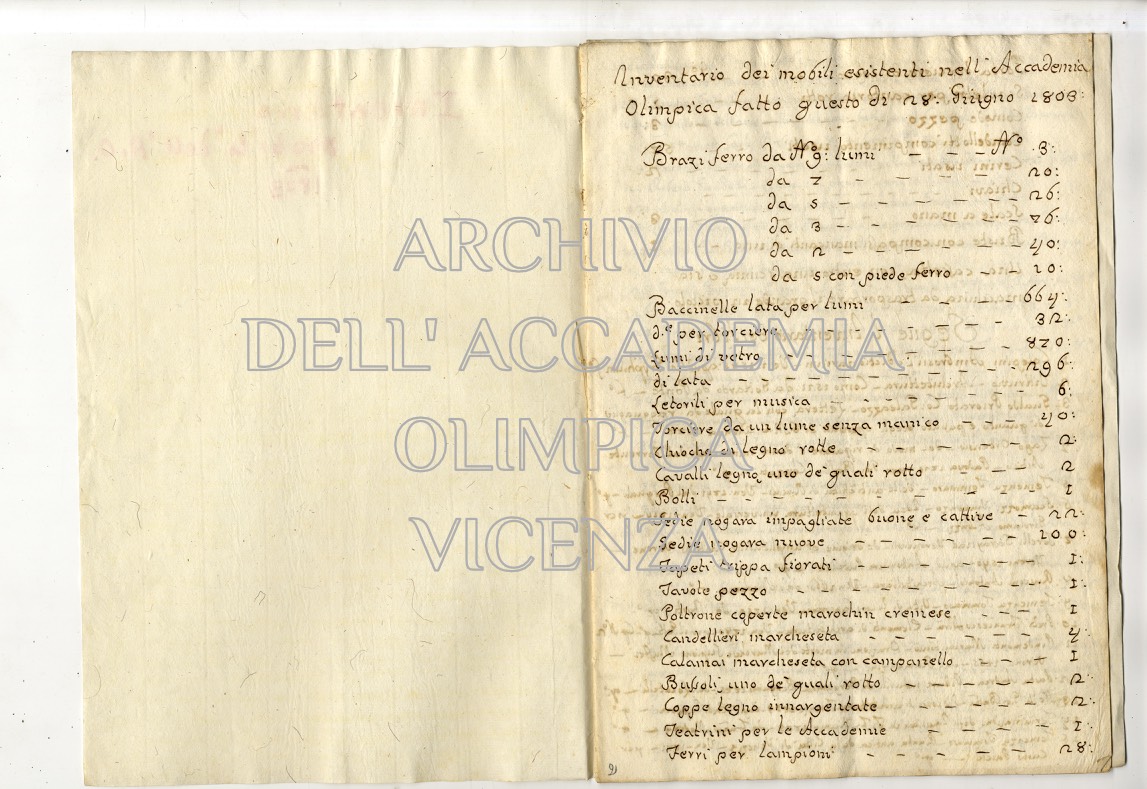 Inventario dei mobili esistenti nell'Accademia
Olimpica fatto questo di 28: Giugno 1808:
Brazi ferro da N° 9: lumi - - - N° 3:
da 7 - - - - - 20:
da 5 - - - - - - 26:
da 3 - - - - - 76:
da 2 - - - - - 40:
da 5 con piede ferro - - 10:
Baccinelle lata per lumi - - - - 664:
d.e per torciere - - - - - - - 32:
Lumi di vetro - - - - - - - 820:
di lata - - - - - - - - - 296:
Letorili per musica - - - - - - 6:
Torciere da un lume senza manico - - - 40:
Chioche di legno rotte - - - - - - 2:
Cavalli legno, uno de' quali rotto - - - 2
Bolli - - - - - - - - - 1
Sedie nogara impagliate buone e cattive - 22:
Sedie nogara nuove - - - - - 100:
Tapeti trippa fiorati - - - - - - 1:
Tavole pezzo - - - - - - - 1:
Poltrone coperte marochin cremese - - - 1
Candellieri marcheseta - - - - - - 4:
Calamai marcheseta con campanello - - - 1
Bussoli uno de' quali rotto - - - - - 2:
Coppe legno innargentate - - - - - 2:
Teatrini per le Accademie - - - - 1:
Ferri per lampioni - - - - - - 28:
ARCHIVIO
DELL' ACCADEMIA
OLIMPICA
VICENZA